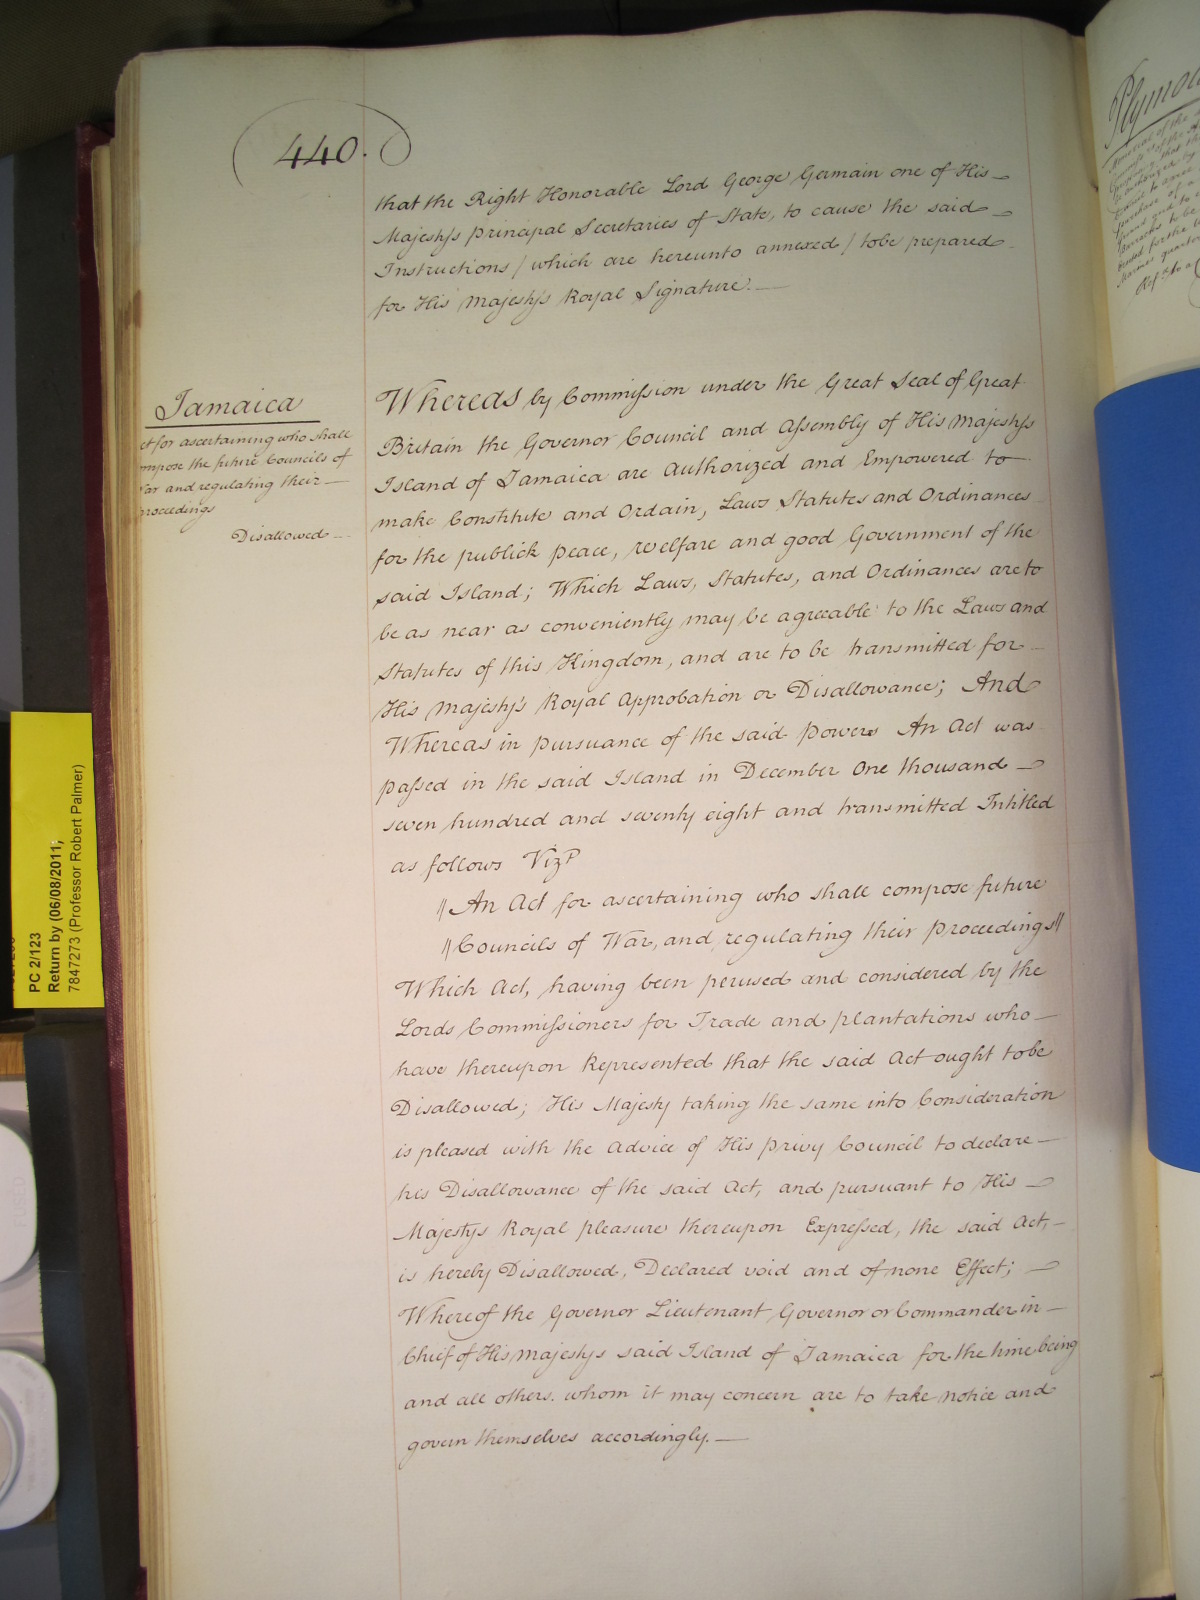 440.
that the Right Honorable Lord George Germain one of His
Majesty's Principal Secretaries of State, to cause the said
Instructions / which are hereunto annexed / tobe prepared
for His Majesty's Royal Signature.
Jamaica
ct for ascertaining who shall
mpose the future Councils of
War and regulating their
proceedings
Disallowed
Whereas by Commission under the Great Seal of Great
Britain the Governor Council and Assembly of His Majesty's
Island of Jamaica are Authorized and Empowered to
make Constitute and Ordain, Laws Statutes and Ordinances
for the publick peace, welfare and good Government of the
said Island; Which Laws, Statutes, and Ordinances are to
be as near as conveniently may be agreeable to the Laws and
Statutes of this Kingdom, and are to be transmitted for
His Majesty's Royal Approbation or Disallowance; And
Whereas in pursuance of the said Powers An Act was
passed in the said Island in December One thousand
seven hundred and seventy eight and transmitted Intitled
as follows Vizt
"An Act for ascertaining who shall compose future
"Councils of War, and regulating their Proceedings"
Which Act, having been perused and considered by the
Lords Commissioners for Trade and plantations who
have thereupon Represented that the said Act ought tobe
Disallowed; His Majesty taking the same into Consideration
is pleased with the Advice of His Privy Council to declare
his Disallowance of the said Act, and pursuant to His
Majestys Royal pleasure thereupon Expressed, the said Act,
is hereby Disallowed, Declared void and of none Effect;
Whereof the Governor Lieutenant Governor or Commander in
Chief of His Majestys said Island of Jamaica for the time being
and all others whom it may concern are to take notice and
govern themselves accordingly.
PC 2/123
Return by (06/08/2011;
7847273 (Professor Robert Palmer)